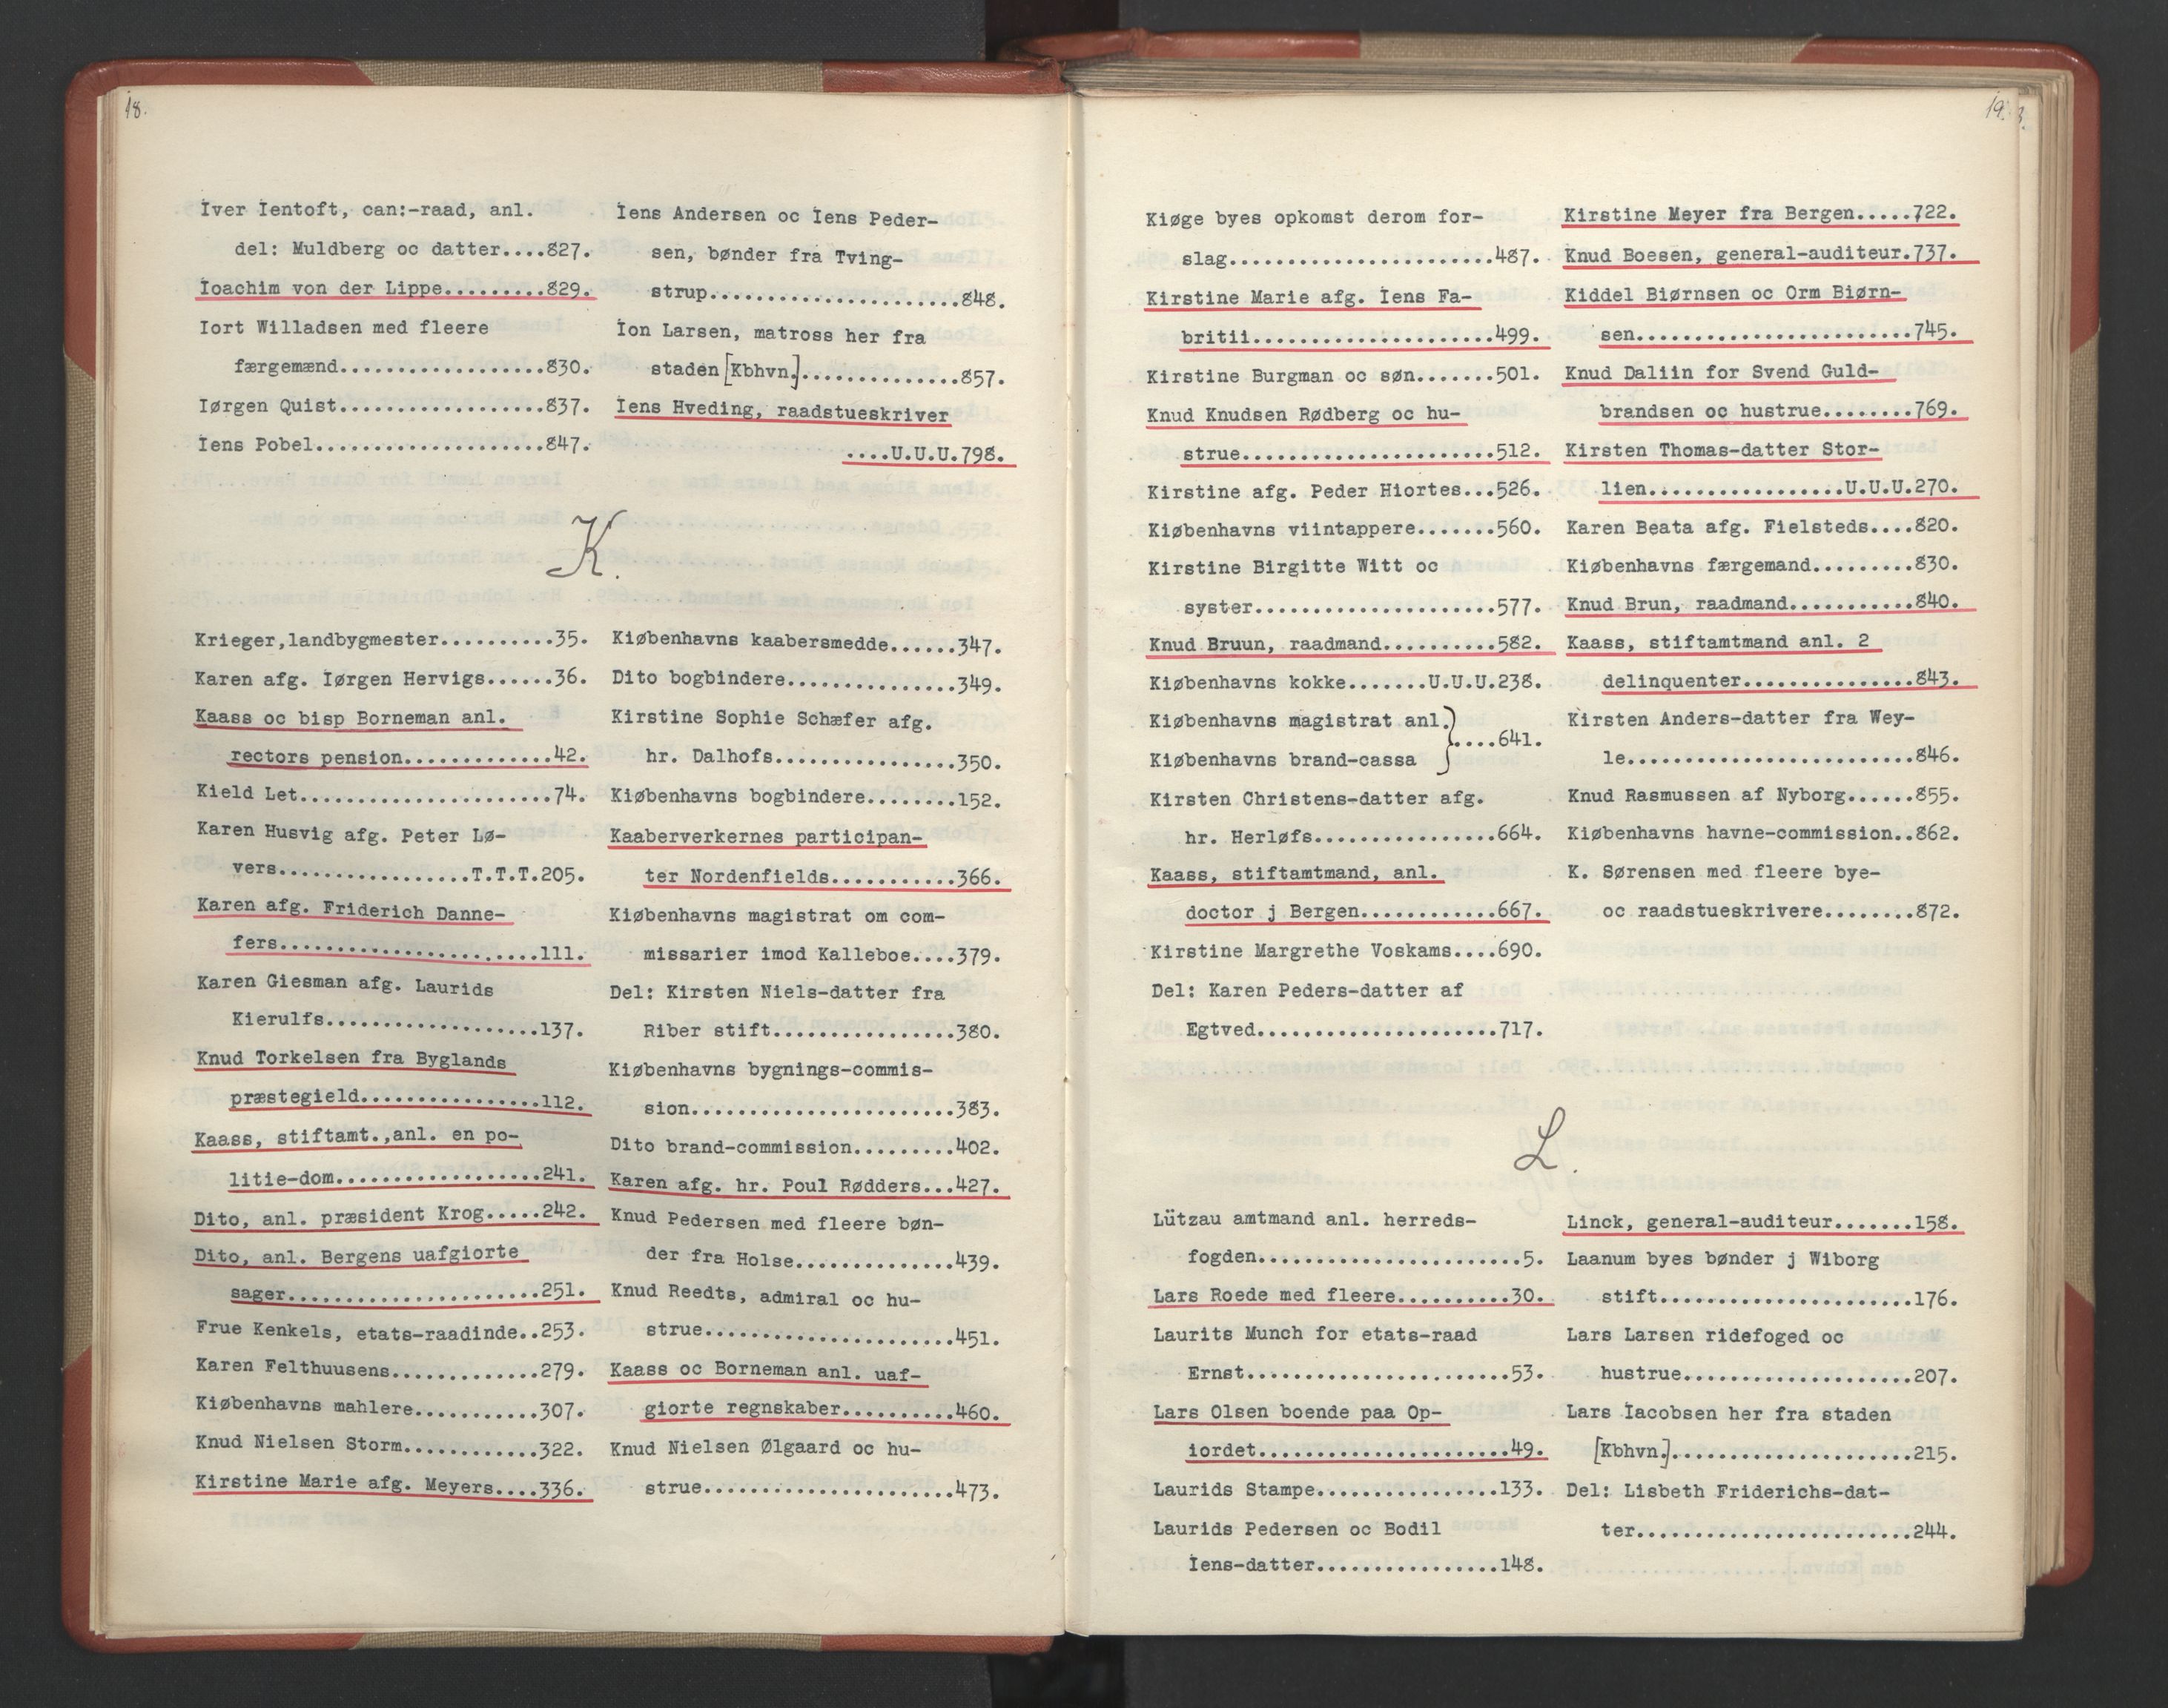 18.
Iver Ientoft, can:-raad, anl.
del: Muldberg oc datter....827.
Ioachim von der Lippe.........829.
Iort Willadsen med fleere
færgemænd..................830.
Iørgen Quist..................837.
Iens Pobel....................847.
Iens Andersen oc Iens Peder-
sen, bønder fra Tving-
strup......................848.
Ion Larsen, matross her fra
staden [Kbhvn.]..............857.
Iens Hveding, raadstueskriver
....U.U.U.798.
K.
Krieger,landbygmester..........35.
Karen afg. Iørgen Hervigs......36.
Kaass oc bisp Borneman anl.
rectors pension.............42.
Kield Let......................74.
Karen Husvig afg. Peter Lø-
vers.................T.T.T.205.
Karen afg. Friderich Danne-
fers.......................111.
Karen Giesman afg. Laurids
Kierulfs...................137.
Knud Torkelsen fra Byglands
præstegield................112.
Kaass, stiftamt.,anl. en po-
litie-dom..................241.
Dito, anl. præsident Krog.....242.
Dito, anl. Bergens uafgiorte
sager......................251.
Frue Kenkels, etats-raadinde..253.
Karen Felthuusens.............279.
Kiøbenhavns mahlere...........307.
Knud Nielsen Storm............322.
Kirstine Marie afg. Meyers....336.
Kiøbenhavns kaabersmedde......347.
Dito bogbindere...............349.
Kirstine Sophie Schæfer afg.
hr. Dalhofs................350.
Kiøbenhavns bogbindere........152.
Kaaberverkernes participan-
ter Nordenfields...........366.
Kiøbenhavns magistrat om com-
missarier imod Kalleboe....379.
Del: Kirsten Niels-datter fra
Riber stift................380.
Kiøbenhavns bygnings-commis-
sion.......................383.
Dito brand-commission.........402.
Karen afg. hr. Poul Rødders...427.
Knud Pedersen med fleere bøn-
der fra Holse..............439.
Knud Reedts, admiral oc hu-
strue......................451.
Kaass oc Borneman anl. uaf-
giorte regnskaber..........460.
Knud Nielsen Ølgaard oc hu-
strue......................473.
19.
3.
Kiøge byes opkomst derom for-
slag.......................487.
Kirstine Marie afg. Iens Fa-
britii.....................499.
Kirstine Burgman oc søn.......501.
Knud Knudsen Rødberg oc hu-
strue......................512.
Kirstine afg. Peder Hiortes...526.
Kiøbenhavns viintappere.......560.
Kirstine Birgitte Witt oc
syster.....................577.
Knud Bruun, raadmand..........582.
Kiøbenhavns kokke.......U.U.U.238.
Kiøbenhavns magistrat anl.
}....641.
Kiøbenhavns brand-cassa
Kirsten Christens-datter afg.
hr. Herløfs................664.
Kaass, stiftamtmand, anl.
doctor j Bergen............667.
Kirstine Margrethe Voskams....690.
Del: Karen Peders-datter af
Egtved.....................717.
Kirstine Meyer fra Bergen.....722.
Knud Boesen, general-auditeur.737.
Kiddel Biørnsen oc Orm Biørn-
sen........................745.
Knud Daliin for Svend Guld-
brandsen oc hustrue........769.
Kirsten Thomas-datter Stor-
lien.................U.U.U.270.
Karen Beata afg. Fielsteds....820.
Kiøbenhavns færgemand.........830.
Knud Brun, raadmand...........840.
Kaass, stiftamtmand anl. 2
delinquenter...............843.
Kirsten Anders-datter fra Wey-
le.........................846.
Knud Rasmussen af Nyborg......855.
Kiøbenhavns havne-commission..862.
K. Sørensen med fleere bye-
oc raadstueskrivere........872.
L.
Lützau amtmand anl. herreds-
fogden.......................5.
Lars Roede med fleere..........30.
Laurits Munch for etats-raad
Ernst.......................53.
Lars Olsen boende paa Op-
iordet......................49.
Laurids Stampe................133.
Laurids Pedersen oc Bodil
Iens-datter................148.
Linck, general-auditeur.......158.
Laanum byes bønder j Wiborg
stift......................176.
Lars Larsen ridefoged oc
hustrue....................207.
Lars Iacobsen her fra staden
[Kbhvn.].....................215.
Del: Lisbeth Friderichs-dat-
ter........................244.